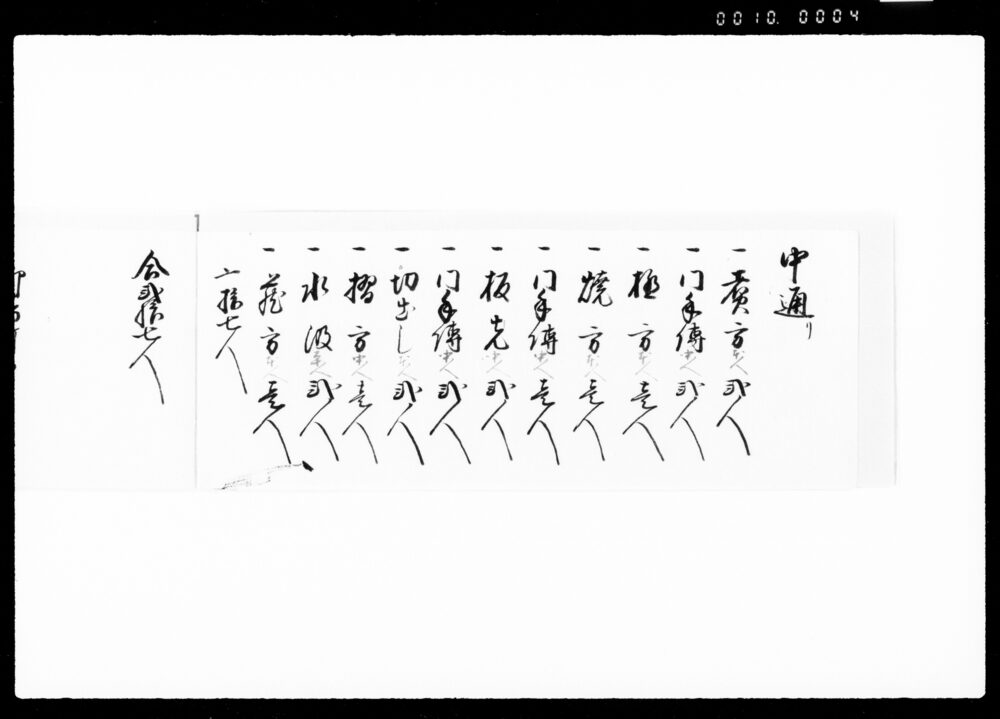 0010. 0004
中通り
一 煮方 弐人
一 同手傳 弐人
一 方 壱人
一 焼方 壱人
一 同手傳 壱人
一 板先 弐人
一 同手傳 弐人
一 切出し 弐人
一 摺方 壱人
一 水汲 弐人
一 方 壱人
〆拾七人
合弐拾七人